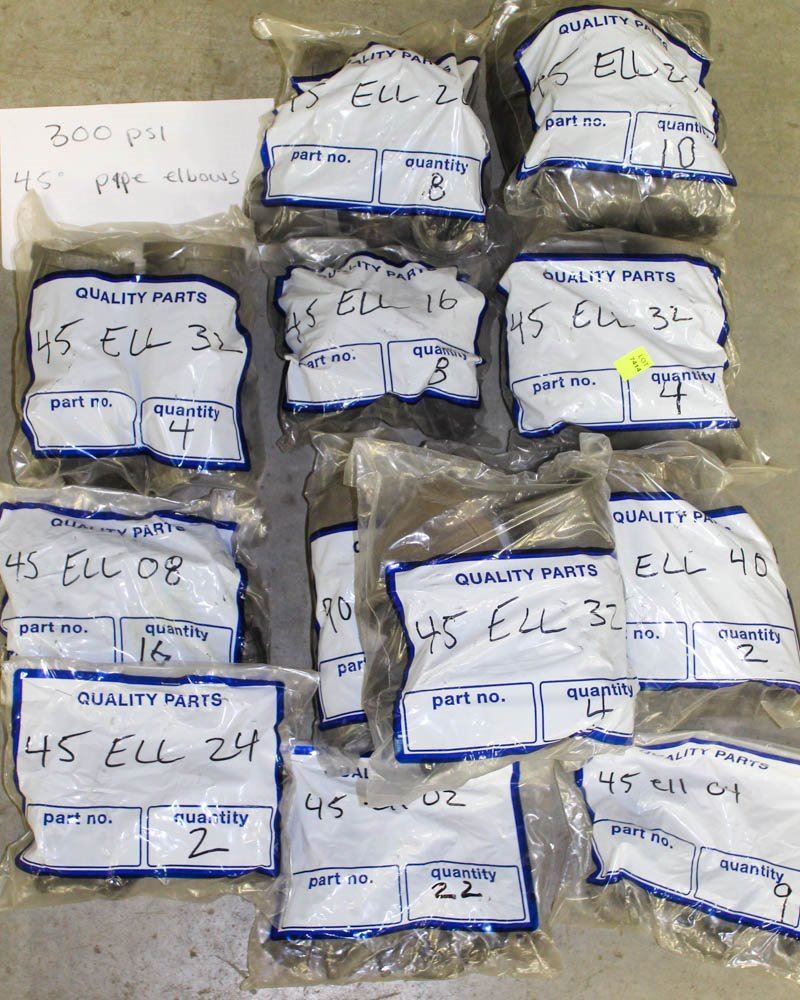 300 psi
45° pipe elbows
QUALITY PARTS
45 ELL
part no.
quantity
8
QUALITY PARTS
45 ELL
part no.
quantity
10
QUALITY PARTS
45 ELL 32
part no.
quantity
4
QUALITY PARTS
45 ELL 16
part no.
quantity
8
QUALITY PARTS
45 ELL 32
LOT
7414
part no.
quantity
4
QUALITY PARTS
45 ELL 08
part no.
quantity
16
QUALITY PARTS
45 ELL 32
part no.
quantity
4
QUALITY
ELL 40
no.
quantity
2
QUALITY PARTS
45 ELL 24
part no.
quantity
2
45 02
part no.
quantity
22
QUALITY PARTS
45 ell 04
part no.
quantity
9